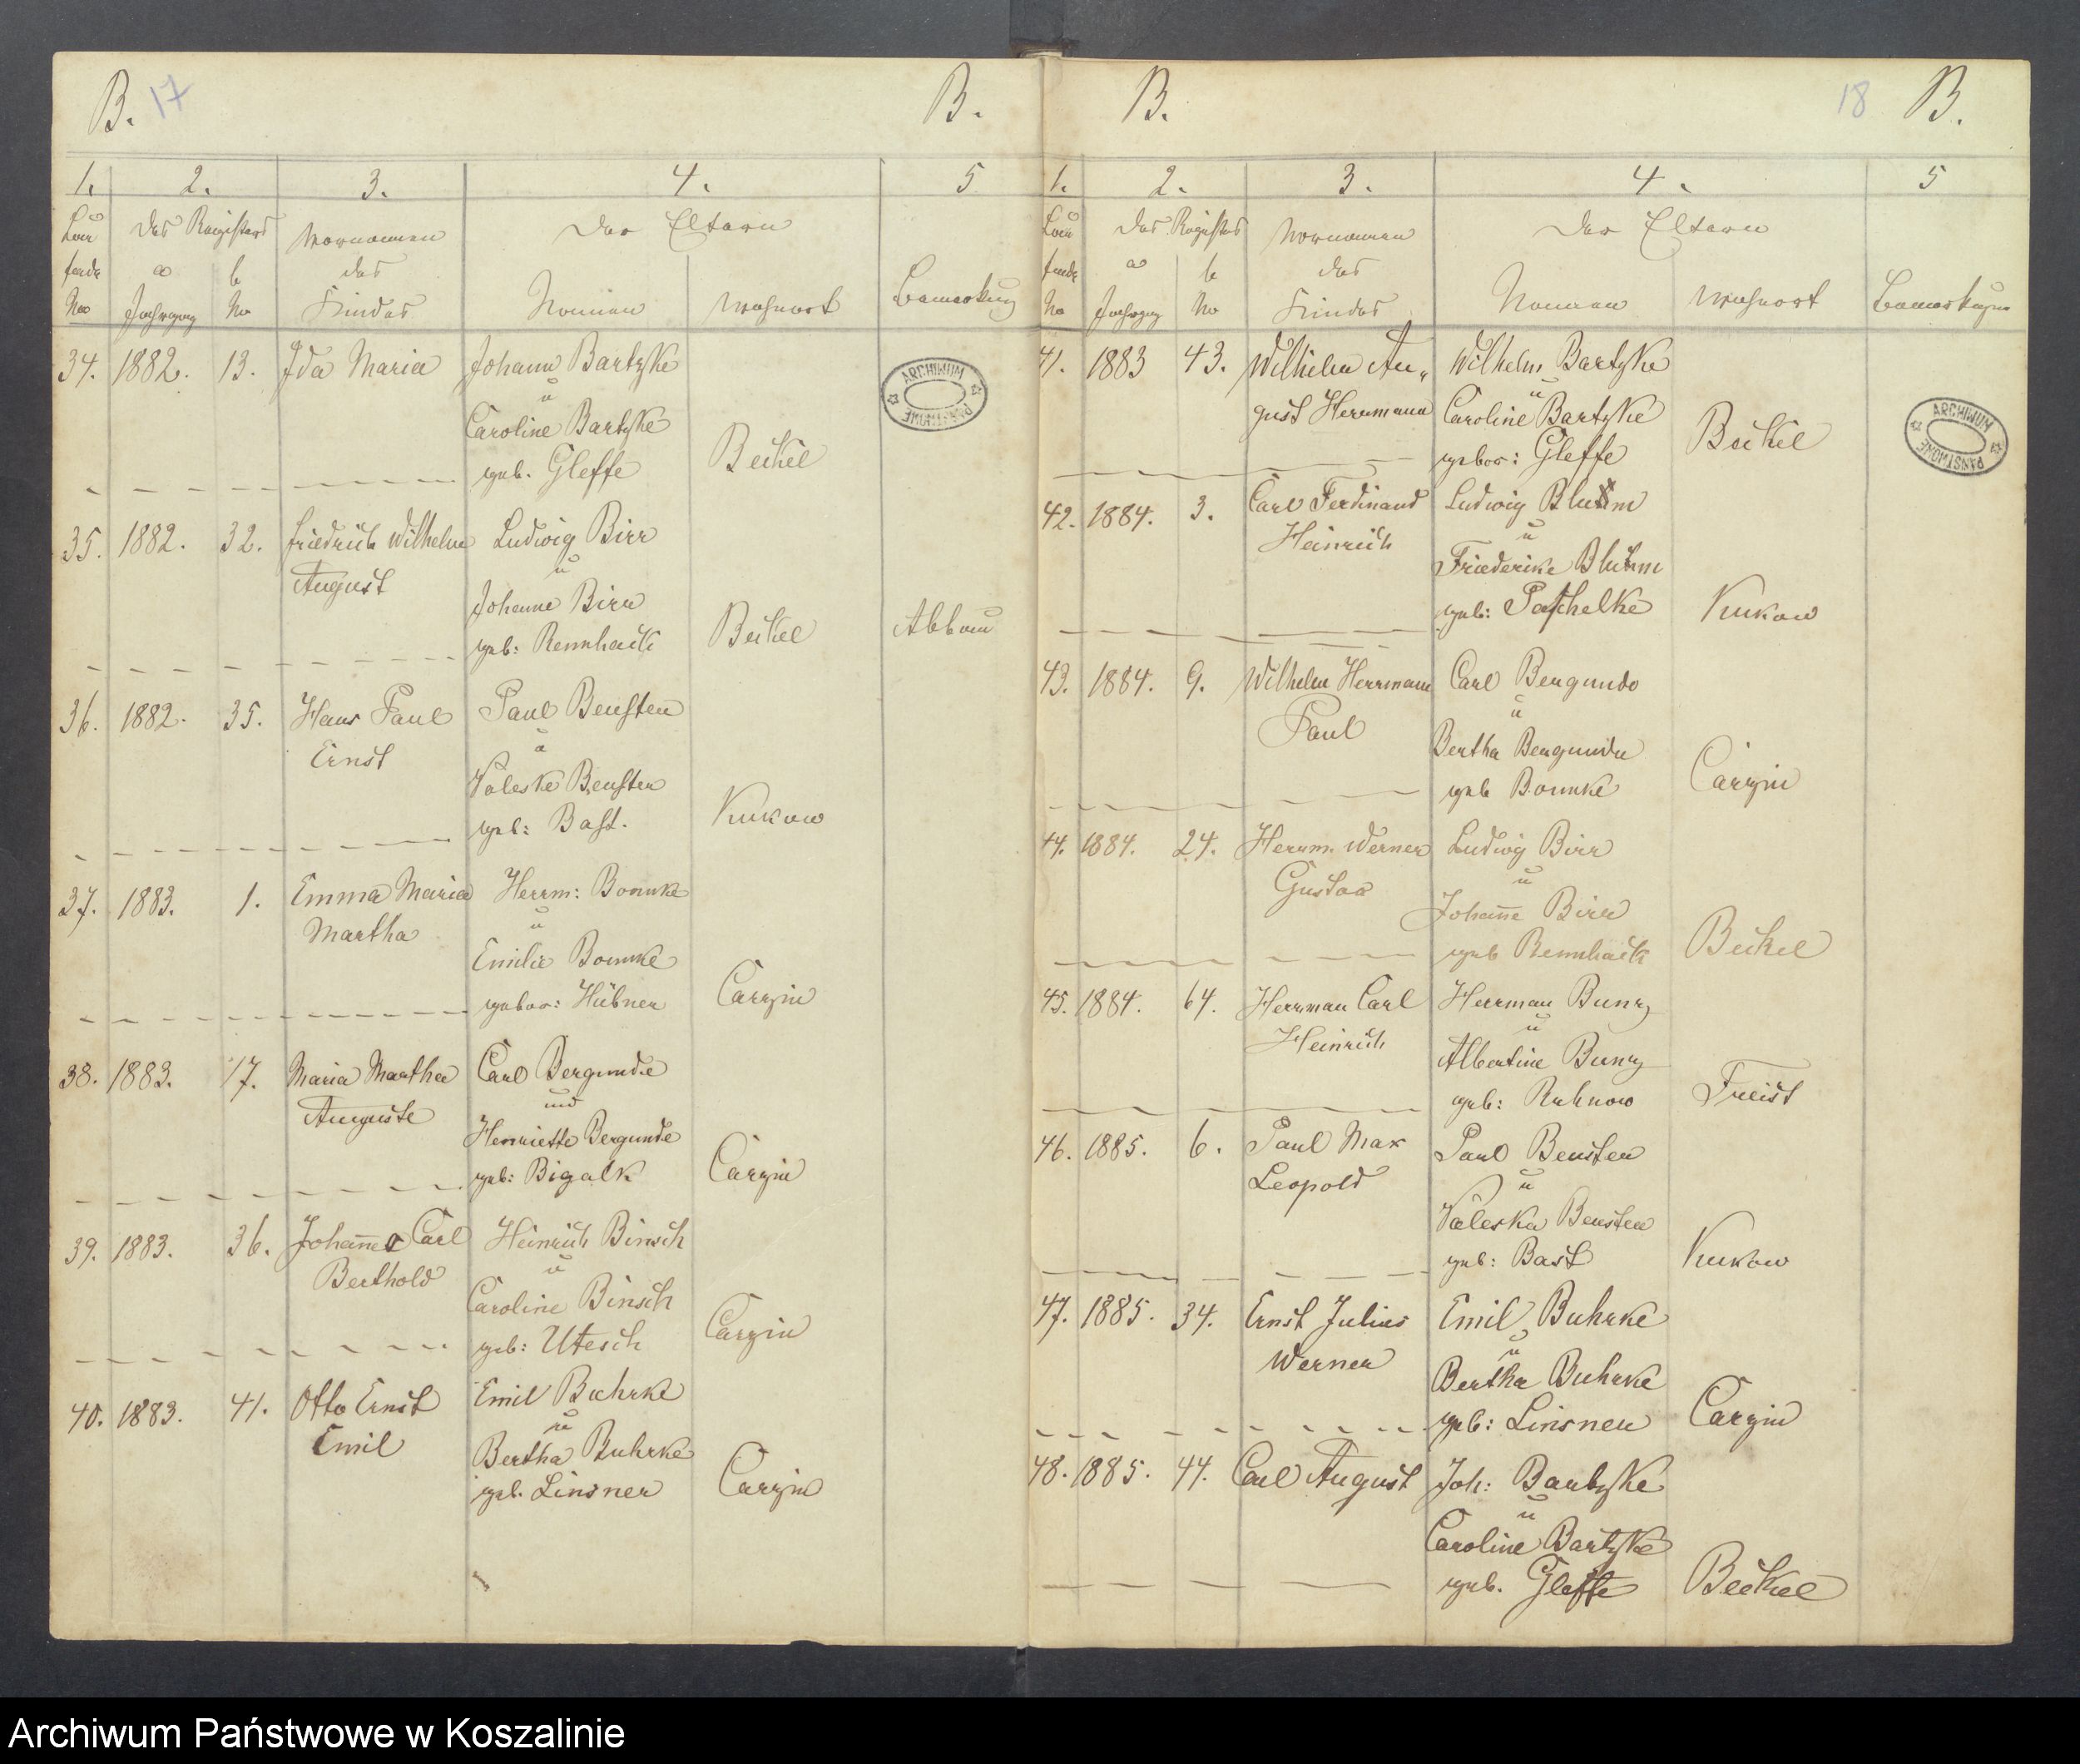 B. 17 B.
1. 2. 3. 4. 5
Laufende No
des Registers
a Jahrgang
b No
Vornamen
des
Kindes
der Eltern
Namen
Wohnort
Bemerkung
34. 1882. 13. Ida Maria Johann Bartzke
u
Caroline Bartzke
geb. Gleffe Beckel
35. 1882. 32. Friedrich Wilhelm Ludwig Birr
August u
Johanne Birr
geb: Rennhack Beckel Abbau
36. 1882. 35. Hans Paul Paul Bensten
Ernst u
Valeska Bensten
geb: Bast. Kukow
37. 1883. 1. Emma Maria Herrm: Bomke
Martha u
Emilie Bomke
gebor: Hübner Carzin
38. 1883. 17. Maria Martha Carl Bergunde
Auguste und
Henriette Bergunde
geb: Bigalk Carzin
39. 1883. 36. Johannes Carl Heinrich Binsch
Berthold u
Caroline Binsch
geb: Utesch Carzin
40. 1883. 41. Otto Ernst Emil Buhrke
Emil u
Bertha Buhrke
geb. Linsner Carzin
B. 18 B.
1. 2. 3. 4. 5
Laufende No
des Registers
a Jahrgang
b No
Vornamen
des
Kindes
der Eltern
Namen
Wohnort
Bemerkungen
41. 1883 43. Wilhelm Au„ Wilhelm Bartzke
gust Herrmann u
Caroline Bartzke
gebor: Gleffe Beckel
42. 1884. 3. Carl Ferdinand Ludwig Bluhm
Heinrich u
Friederike Bluhm
geb: Paschelke Kukow
43. 1884. 9. Wilhelm Herrmann Carl Bergunde
Paul u
Bertha Bergunde
geb Bomke Carzin
44. 1884. 24. Herrm. Werner Ludwig Birr
Gustav u
Johanne Birr
geb Rennhack Beckel
45. 1884. 64. Herrman Carl Herrman Bunz
Heinrich u
Albertine Bunz
geb: Ruhnow Freist
46. 1885. 6. Paul Max Paul Bensten
Leopold u
Valeska Bensten
geb: Bast Kukow
47. 1885. 34. Ernst Julius Emil Buhrke
Werner u
Bertha Buhrke
geb: Linsner Carzin
48. 1885. 44. Carl August Joh: Bartzke
u
Caroline Bartzke
geb. Gleffe Beckel
ARCHIWUM PAŃSTWOWE
ARCHIWUM PAŃSTWOWE
Archiwum Państwowe w Koszalinie